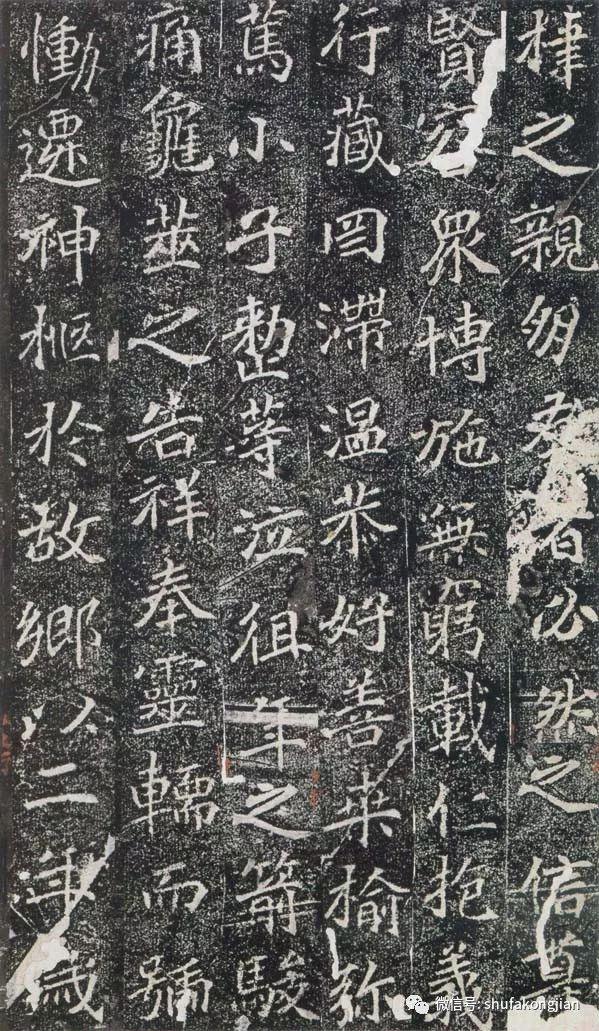 棣之親朋必然之信尊
賢容衆博施無窮載仁抱義
行藏罔滯温恭好善桒榆弥
篤小子整等泣徂年之箭駿
痛龜筮之告祥奉靈轜而號
慟遷神柩於故鄉以二年歲
微信号: shufakongjian